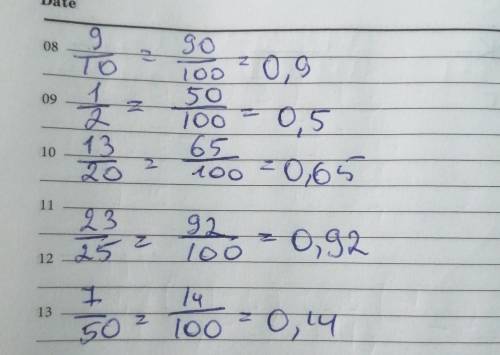 Date
08 9/10 = 90/100 = 0,9
09 1/2 = 50/100 = 0,5
10 13/20 = 65/100 = 0,65
11
23/25 = 92/100 = 0,92
12
13 7/50 = 14/100 = 0,14